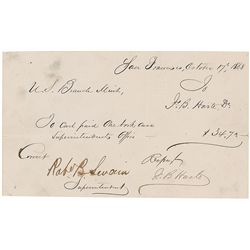 San Francisco, October 17th 1868
U. S. Branch Mint,
To
F. B. Harte Dr.
To Cash paid
Superintendents Office
$ 34.75
Correct
Robt B. Swain
Superintendent
F. B. Harte